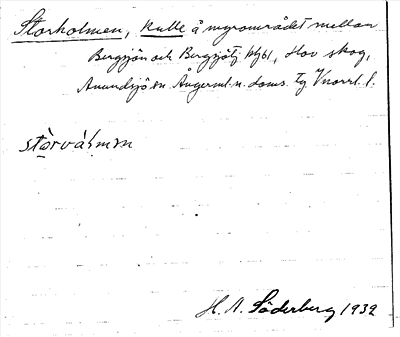 Storholmen, kulle å myrområdet mellan
Bergsjön och Bergsjötj. blg 61, Hov skog,
Anundsjö sn Ångerml. n. doms. tg Vnorrl. l.
stòrvál̥mɘn
H. A. Söderberg 1932